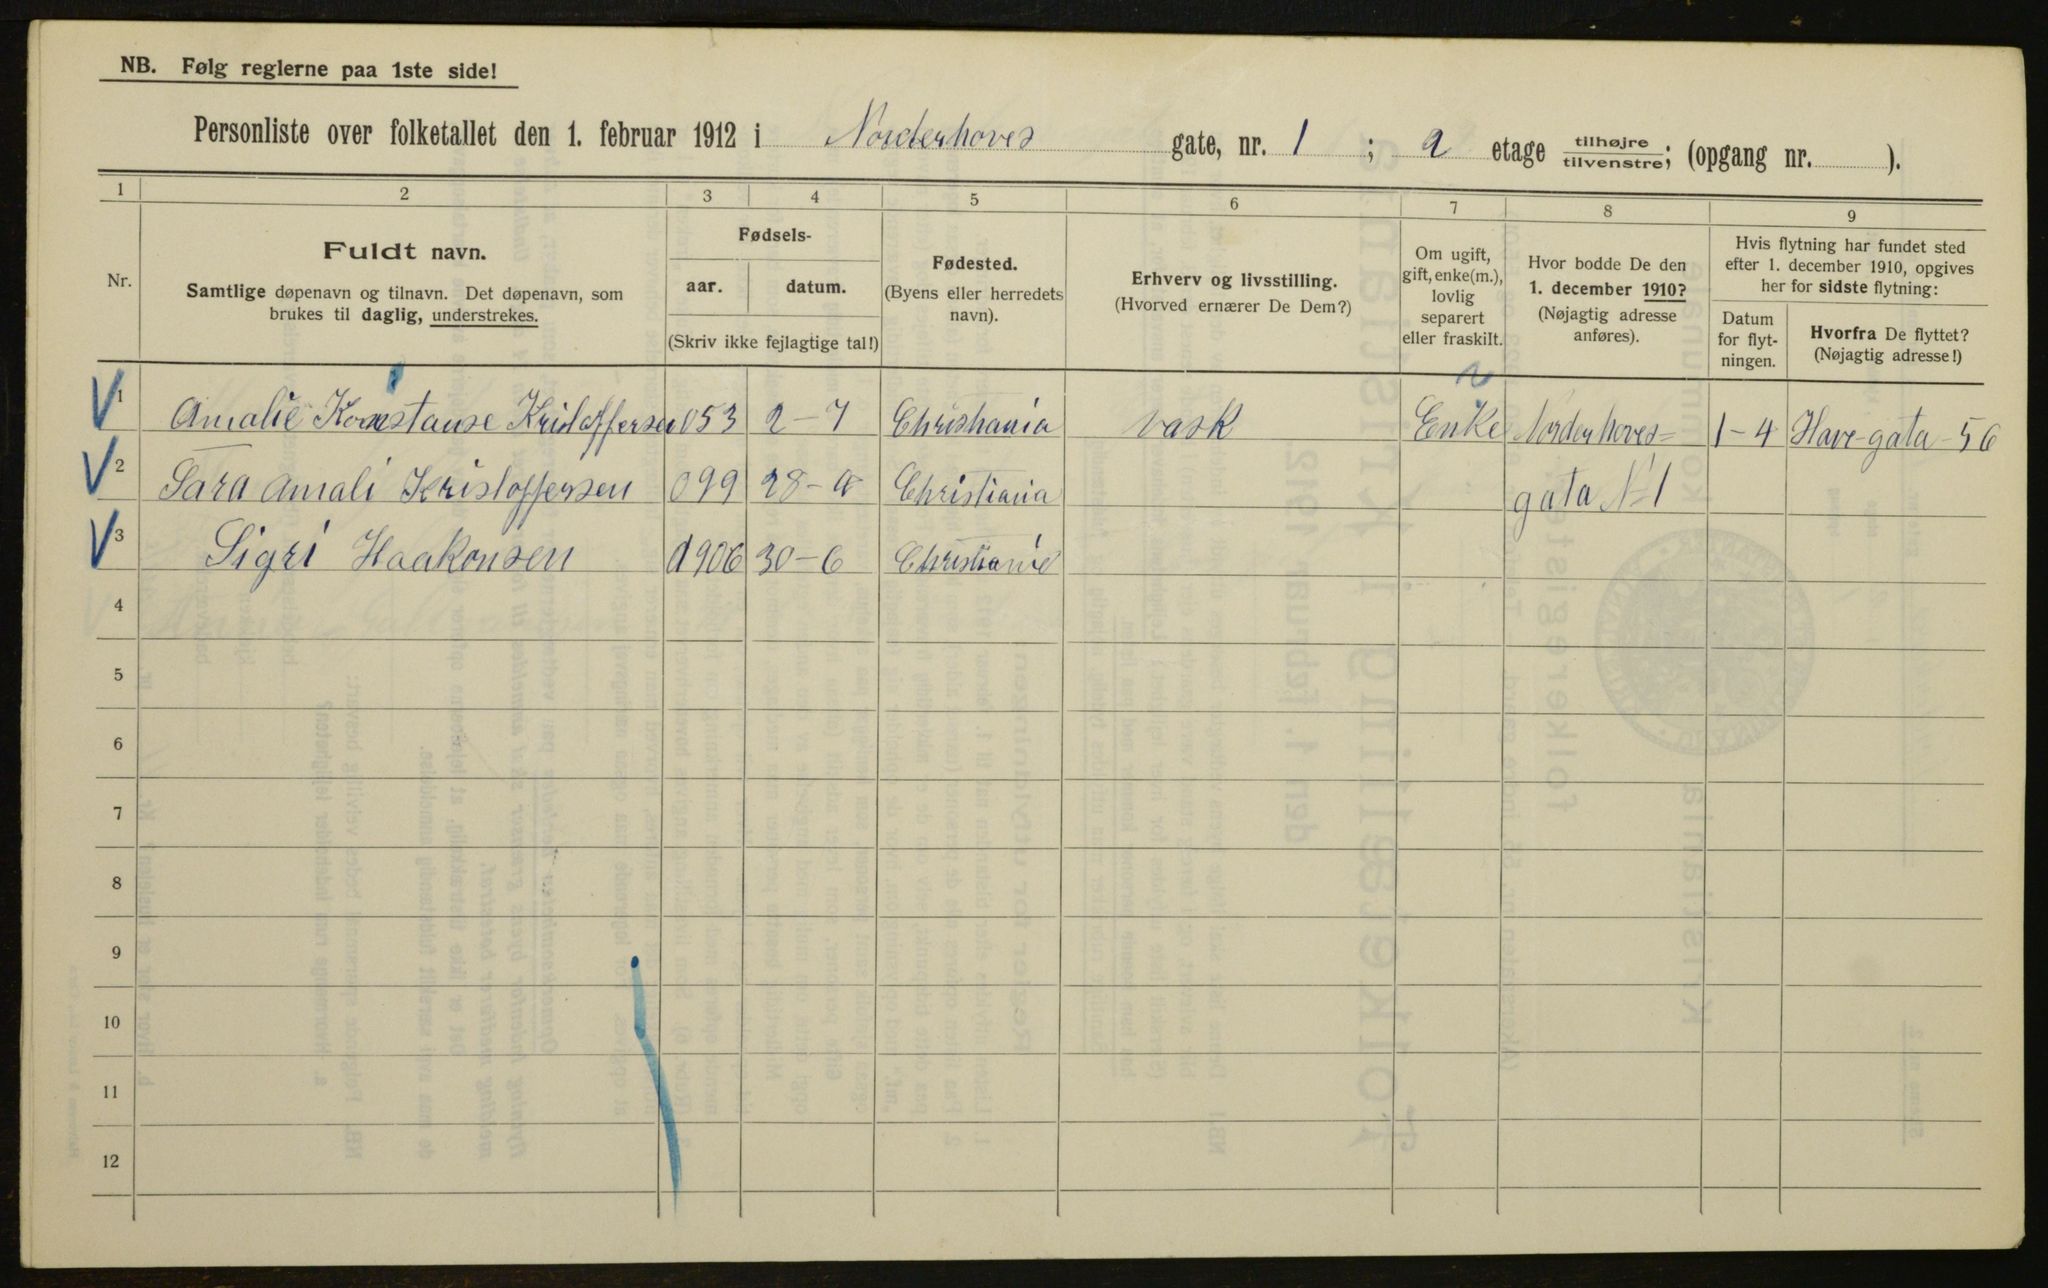 NB. Følg reglerne paa 1ste side!
Personliste over folketallet den 1. februar 1912 i Norderhoves gate, nr. 1 ; 2 etage tilhøjre tilvenstre; (opgang nr. ).
1 2 3 4 5 6 7 8 9
Nr.
Fuldt navn.
Samtlige døpenavn og tilnavn. Det døpenavn, som
brukes til daglig, understrekes.
Fødsels-
aar. datum.
(Skriv ikke fejlagtige tal!)
Fødested.
(Byens eller herredets
navn).
Erhverv og livsstilling.
(Hvorved ernærer De Dem?)
Om ugift,
gift, enke(m.),
lovlig
separert
eller fraskilt.
Hvor bodde De den
1. december 1910?
(Nøjagtig adresse
anføres).
Hvis flytning har fundet sted
efter 1. december 1910, opgives
her for sidste flytning:
Datum
for flyt-
ningen.
Hvorfra De flyttet?
(Nøjagtig adresse!)
1 Amalie Konstanse Kristoffersen 053 2-7 Christiania vask Enke Norderhoves= 1-4 Have-gata-56
2 Sara Amali Kristoffersen 099 28- Christiania gata N=1
3 Sigri Haakonsen 1906 30-6 Christianie
4
5
6
7
8
9
10
11
12